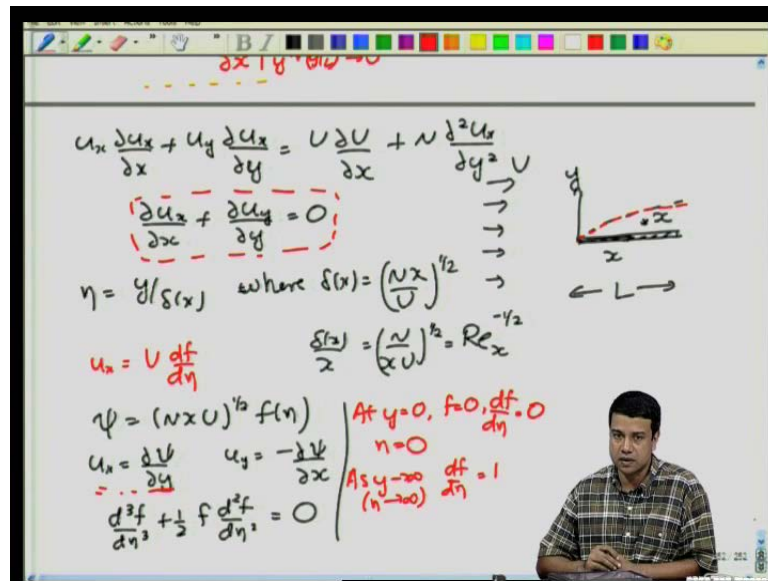 B I
u_x ∂u_x/∂x + u_y ∂u_x/∂y = U ∂U/∂x + ν ∂²u_x/∂y²
U
∂u_x/∂x + ∂u_y/∂y = 0
y
x
x
L
η = y/δ(x) where δ(x) = (νx/U)^1/2
δ(x)/x = (ν/xU)^1/2 = Re_x^-1/2
u_x = U df/dη
ψ = (νxU)^1/2 f(η)
u_x = ∂ψ/∂y u_y = -∂ψ/∂x
d³f/dη³ + 1/2 f d²f/dη² = 0
At y=0, f=0, df/dη = 0
η=0
As y→∞ df/dη = 1
(η→∞)